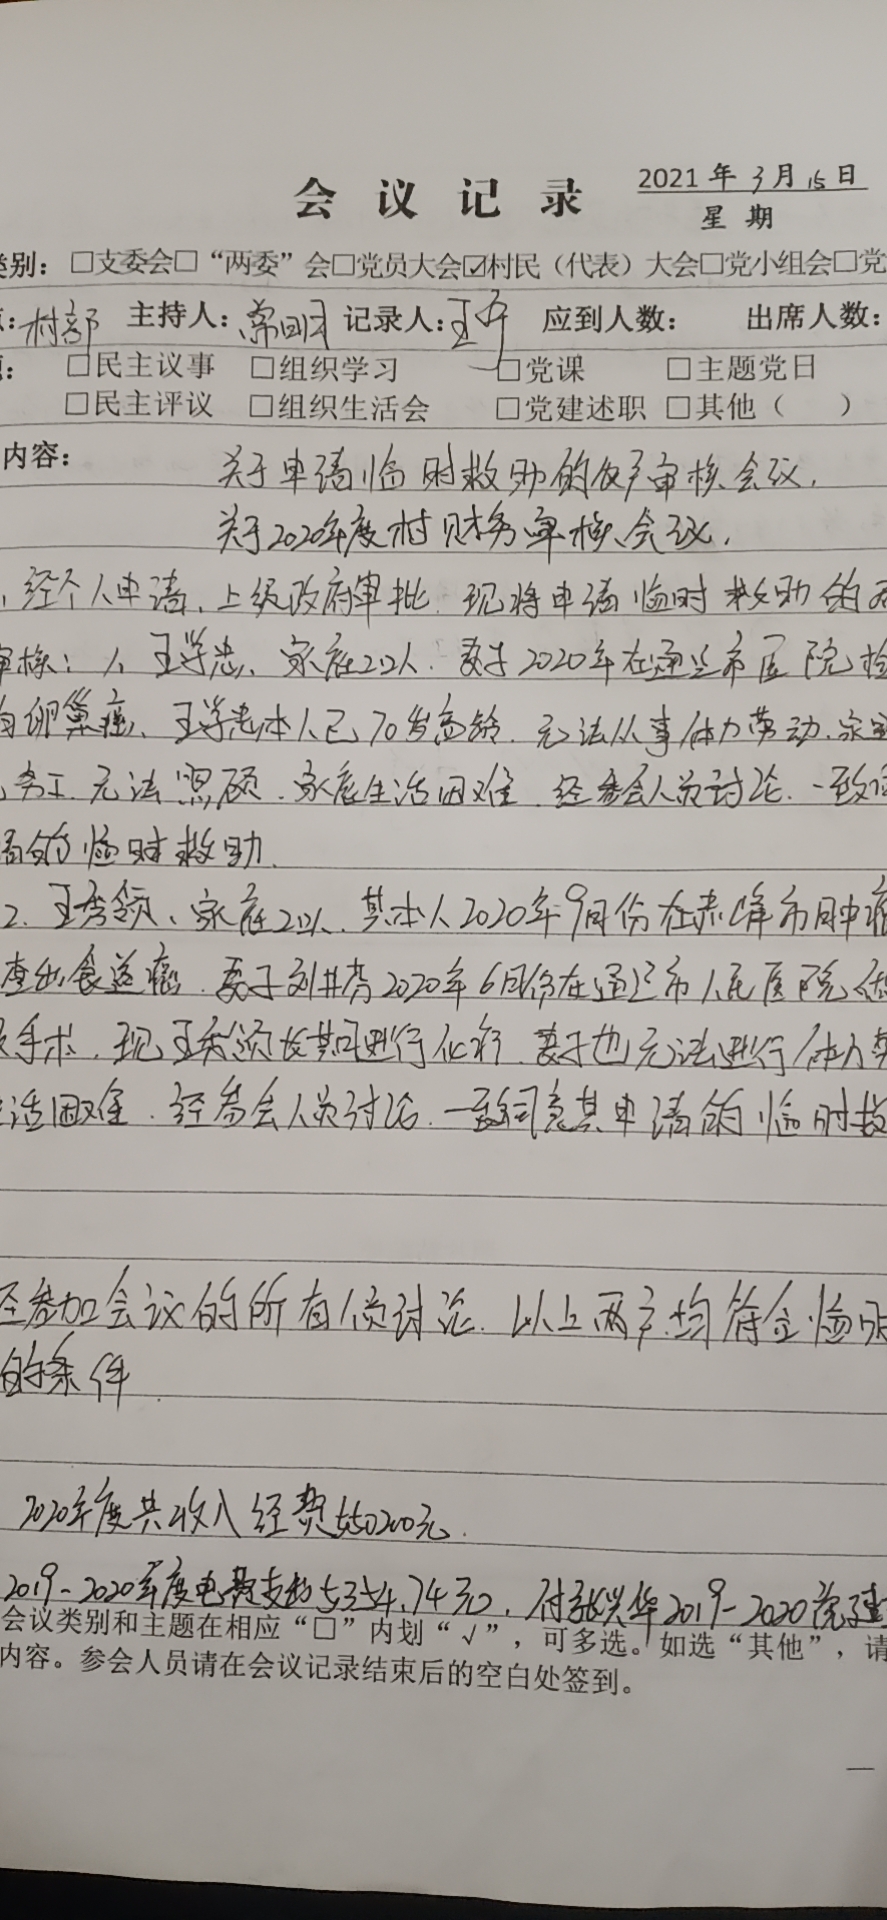 会议记录
2021年3月15日
星期
类别：□支委会□“两委”会□党员大会☑村民（代表）大会□党小组会□党
：村部 主持人： 记录人：王 应到人数： 出席人数：
：□民主议事 □组织学习 □党课 □主题党日
□民主评议 □组织生活会 □党建述职 □其他（ ）
内容：
关于申请临时救助的农户审核会议，
关于2020年度村财务审核会议，
、经个人申请、上级政府审批、现将申请临时救助的两
审核：1、王学忠、家庭2口人、妻子2020年在通辽市医院检
有卵巢癌、王学忠本人已70岁高龄、无法从事体力劳动、家
务工、无法照顾、家庭生活困难、经参会人员讨论、一致
请的临时救助、
2、王秀领、家庭2口人、其本人2020年9月份在赤峰市肿瘤
查出食道癌、妻子刘井芳2020年6月份在通辽市人民医院做
手术、现王秀领 进行化疗、妻子也无法进行体力劳
生活困难、经参会人员讨论、一致同意其申请的临时救
经参加会议的所有人员讨论、以上两户均符合临时
的条件
2020年度共收入经费550200元、
2019-2020年度电费支出5354.74元、付张兴华2019-2020
会议类别和主题在相应“□”内划“√”，可多选。如选“其他”，请
内容。参会人员请在会议记录结束后的空白处签到。